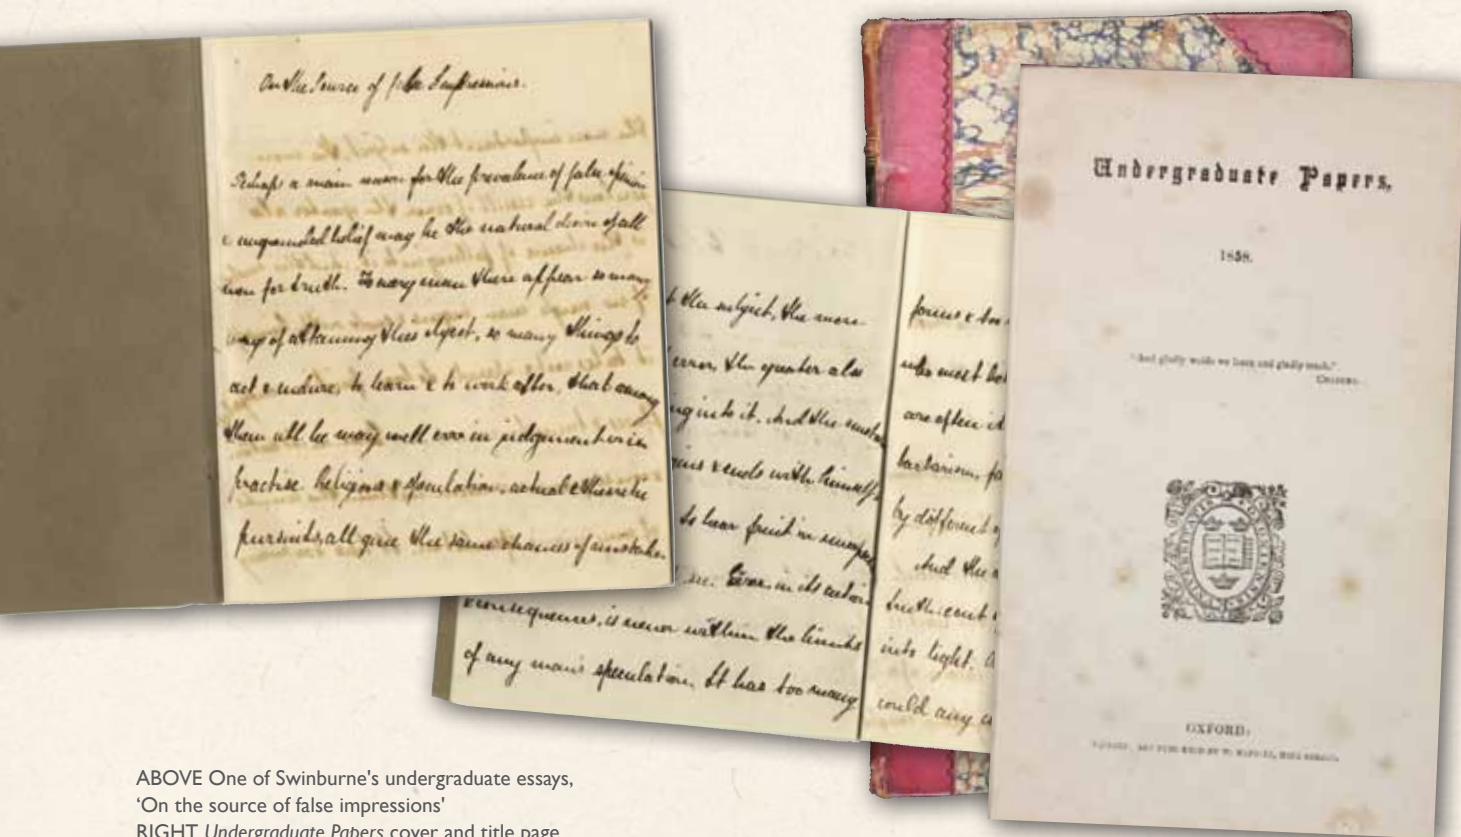 On the Source of false Impressions.
Perhaps a main reason for the prevalence of false opinion
& ungrounded belief may be the natural desire of all
men for truth. To every man there appear so many
ways of attaining this object, so many things to
act & endure, to learn & to work after, that among
them all he may well err in judgement or in
practise. Religion & speculation, actual & theoretic
pursuits, all give the same chances of mistake.
the subject, the more
error, the greater also
ing into it. And the
& ends with himself,
to bear fruit in
Error, in its
consequences, is never within the limits
of any man's speculation. It has too many
forms & too
most
are often
barbarism,
by different
And the
truth
into light.
could any
Undergraduate Papers,
1858.
"And gladly wolde we learn and gladly teach."
CHAUCER.
OXFORD:
ABOVE One of Swinburne's undergraduate essays,
'On the source of false impressions'
RIGHT Undergraduate Papers cover and title page